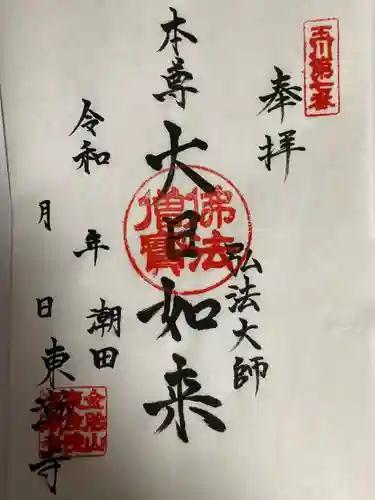 玉川第七番
奉拝
弘法大師
本尊
大日如来
佛法僧寶
令和 年 月 日
潮田
東漸寺